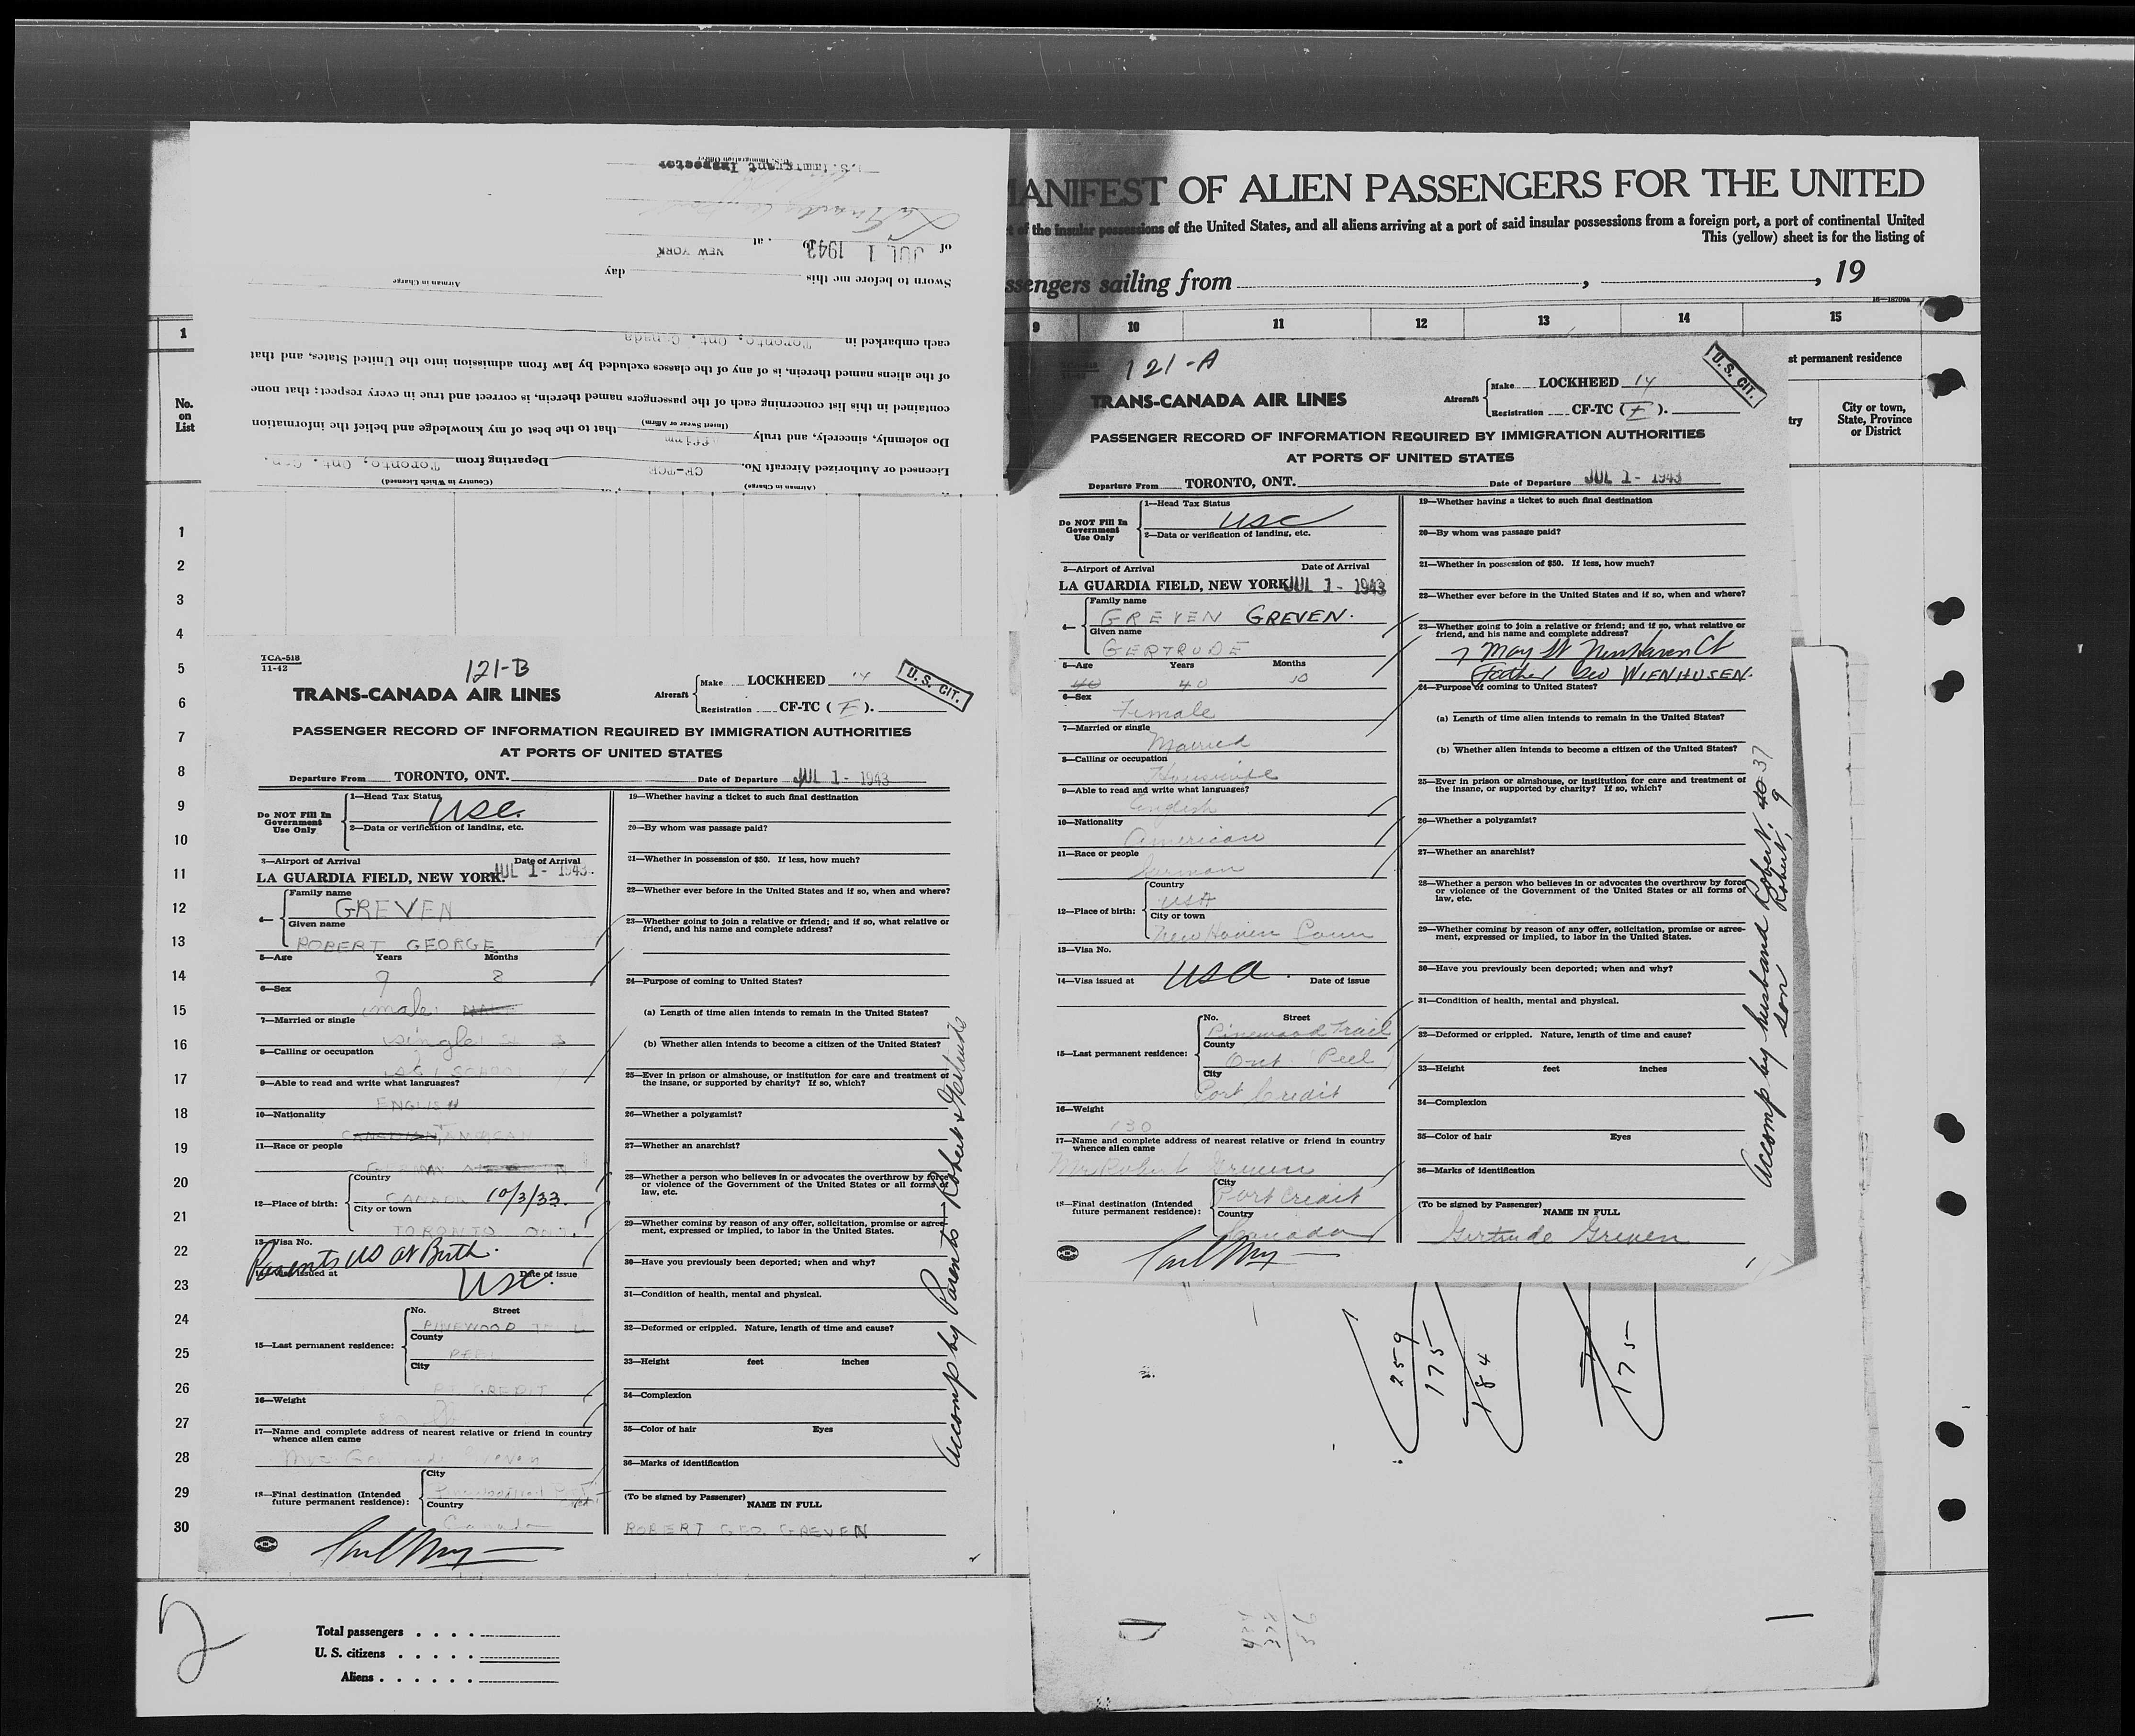 MANIFEST OF ALIEN PASSENGERS FOR THE UNITED
of the insular possessions of the United States, and all aliens arriving at a port of said insular possessions from a foreign port, a port of continental United
This (yellow) sheet is for the listing of
ssengers sailing from , , 19
16—18709a
1
9 10 11 12 13 14 15
st permanent residence
No.
on
List
try
City or town,
State, Province
or District
U.S. Immigrant Inspector
of JUL 1 1943 , at NEW YORK
Sworn to before me this day
Airman in Charge
each embarked in Toronto, Ont. Canada
of the aliens named therein, is of any of the classes excluded by law from admission into the United States, and that
contained in this list concerning each of the passengers named therein, is correct and true in every respect; that none
Do solemnly, sincerely, and truly affirm that to the best of my knowledge and belief the information
(Insert Swear or Affirm)
Licensed or Authorized Aircraft No. CF-TCF Departing from Toronto, Ont. Can.
(Airman in Charge) (Country in Which Licensed)
1
2
3
4
5
6
7
8
9
10
11
12
13
14
15
16
17
18
19
20
21
22
23
24
25
26
27
28
29
30
TCA-518
11-42
121-B
U. S. CIT.
TRANS-CANADA AIR LINES
Aircraft Make LOCKHEED 14
Registration CF-TC ( F ).
PASSENGER RECORD OF INFORMATION REQUIRED BY IMMIGRATION AUTHORITIES
AT PORTS OF UNITED STATES
Departure From TORONTO, ONT. Date of Departure JUL 1 - 1943
Do NOT Fill In
Government
Use Only
1—Head Tax Status
USC
2—Data or verification of landing, etc.
3—Airport of Arrival Date of Arrival
LA GUARDIA FIELD, NEW YORK. JUL 1 - 1943
4— Family name
GREVEN
Given name
ROBERT GEORGE
5—Age Years Months
9 8
6—Sex
male
7—Married or single
single
8—Calling or occupation
SCHOOL
9—Able to read and write what languages?
ENGLISH
10—Nationality
CANADIAN, AMERICAN
11—Race or people
GERMAN
12—Place of birth: Country
CANADA 10/3/33.
City or town
TORONTO ONT.
13—Visa No.
Parents US at Birth.
14—Visa issued at Date of issue
USC.
15—Last permanent residence: No. Street
PINEWOOD
County
PEEL
City
PT CREDIT
16—Weight
17—Name and complete address of nearest relative or friend in country
whence alien came
18—Final destination (Intended
future permanent residence): City
Country
Canada
19—Whether having a ticket to such final destination
20—By whom was passage paid?
21—Whether in possession of $50. If less, how much?
22—Whether ever before in the United States and if so, when and where?
23—Whether going to join a relative or friend; and if so, what relative or
friend, and his name and complete address?
24—Purpose of coming to United States?
(a) Length of time alien intends to remain in the United States?
(b) Whether alien intends to become a citizen of the United States?
25—Ever in prison or almshouse, or institution for care and treatment of
the insane, or supported by charity? If so, which?
26—Whether a polygamist?
27—Whether an anarchist?
28—Whether a person who believes in or advocates the overthrow by force
or violence of the Government of the United States or all forms of
law, etc.
29—Whether coming by reason of any offer, solicitation, promise or agree-
ment, expressed or implied, to labor in the United States.
30—Have you previously been deported; when and why?
31—Condition of health, mental and physical.
32—Deformed or crippled. Nature, length of time and cause?
33—Height feet inches
34—Complexion
35—Color of hair Eyes
36—Marks of identification
(To be signed by Passenger) NAME IN FULL
ROBERT GEO. GREVEN
Accomp by Parents Robert & Gertrude
2
Total passengers
U. S. citizens
Aliens
11-42
121-A
U. S. CIT.
TRANS-CANADA AIR LINES
Aircraft Make LOCKHEED 14
Registration CF-TC ( F ).
PASSENGER RECORD OF INFORMATION REQUIRED BY IMMIGRATION AUTHORITIES
AT PORTS OF UNITED STATES
Departure From TORONTO, ONT. Date of Departure JUL 1 - 1943
Do NOT Fill In
Government
Use Only
1—Head Tax Status
USC
2—Data or verification of landing, etc.
3—Airport of Arrival Date of Arrival
LA GUARDIA FIELD, NEW YORK JUL 1 - 1943
4— Family name
GREVEN GREVEN.
Given name
GERTRUDE
5—Age Years Months
40 40 10
6—Sex
Female
7—Married or single
Married
8—Calling or occupation
Housewife
9—Able to read and write what languages?
English
10—Nationality
American
11—Race or people
German
12—Place of birth: Country
USA
City or town
New Haven Conn
13—Visa No.
14—Visa issued at USA. Date of issue
15—Last permanent residence: No. Street
Pinewood Trail
County
Ont (Peel)
City
Port Credit
16—Weight
130
17—Name and complete address of nearest relative or friend in country
whence alien came
Mr Robert Greven
18—Final destination (Intended
future permanent residence): City
Port Credit
Country
Canada
19—Whether having a ticket to such final destination
20—By whom was passage paid?
21—Whether in possession of $50. If less, how much?
22—Whether ever before in the United States and if so, when and where?
23—Whether going to join a relative or friend; and if so, what relative or
friend, and his name and complete address?
7 May St New Haven Ct
Father Geo WIENHUSEN.
24—Purpose of coming to United States?
(a) Length of time alien intends to remain in the United States?
(b) Whether alien intends to become a citizen of the United States?
25—Ever in prison or almshouse, or institution for care and treatment of
the insane, or supported by charity? If so, which?
26—Whether a polygamist?
27—Whether an anarchist?
28—Whether a person who believes in or advocates the overthrow by force
or violence of the Government of the United States or all forms of
law, etc.
29—Whether coming by reason of any offer, solicitation, promise or agree-
ment, expressed or implied, to labor in the United States.
30—Have you previously been deported; when and why?
31—Condition of health, mental and physical.
32—Deformed or crippled. Nature, length of time and cause?
33—Height feet inches
34—Complexion
35—Color of hair Eyes
36—Marks of identification
(To be signed by Passenger) NAME IN FULL
Gertrude Greven
Accomp by husband Robert N. 40 37
son Robert, 9
259
175
184
175